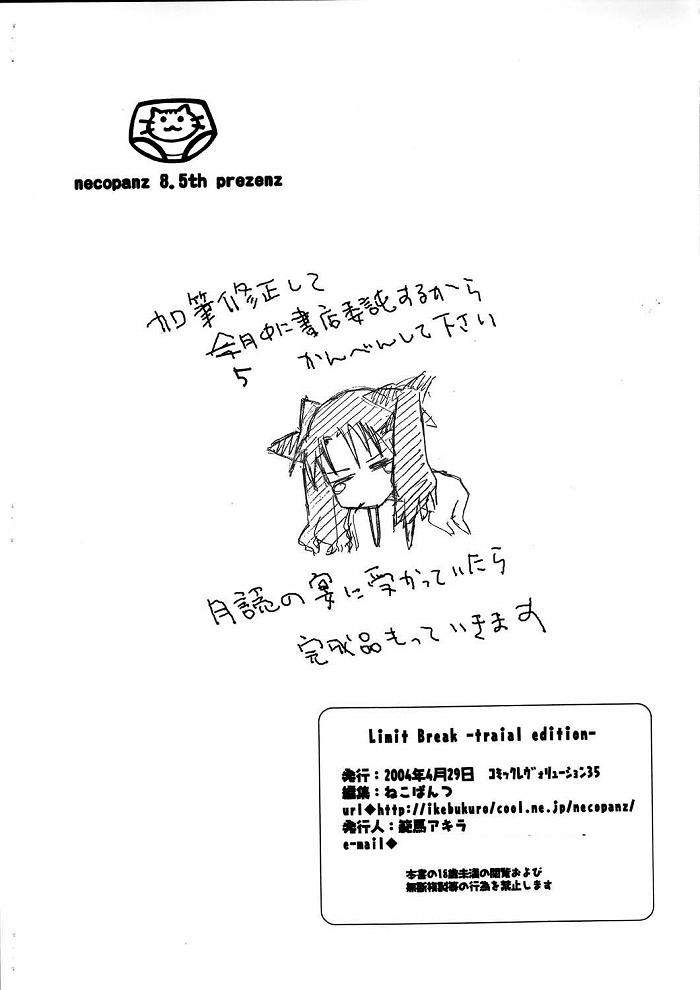 necopanz 8.5th prezenz
加筆修正して
今月中に書店委託するから
5
かんべんして下さい
月認の宴に受かっていたら
完成品もっていきます
Limit Break -traial edition-
発行：2004年4月29日 コミックレヴォリューション35
編集：ねこぱんつ
url◆http://ikebukuro/cool.ne.jp/necopanz/
発行人：範馬アキラ
e-mail◆
本書の18歳未満の閲覧および
無断複製等の行為を禁止します